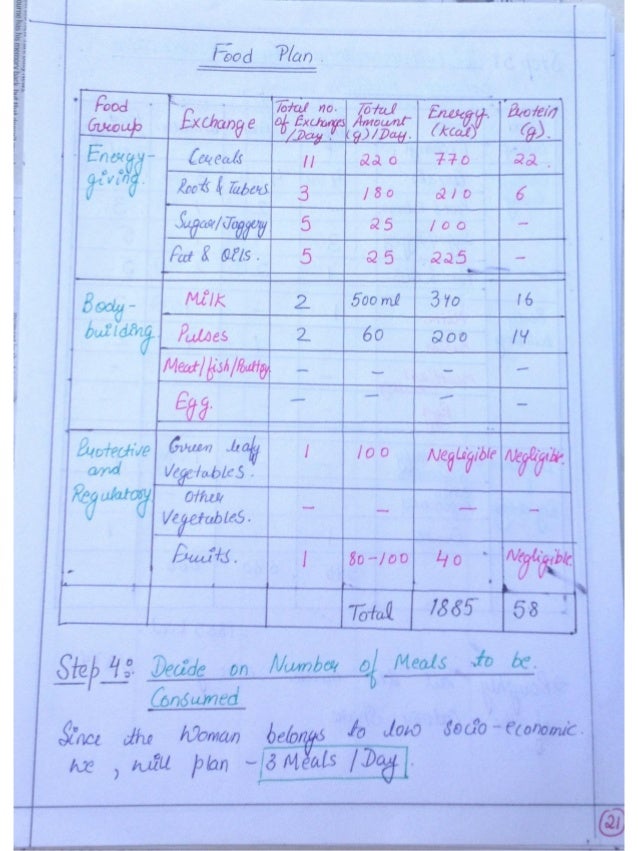 Food Plan
Food Group | Exchange | Total no. of Exchanges /Day. | Total Amount (g)/Day. | Energy (Kcal) | Protein (g).
Energy-giving. | Cereals | 11 | 220 | 770 | 22.
Roots & Tubers | 3 | 180 | 210 | 6
Sugar/Jaggery | 5 | 25 | 100 | -
Fat & Oils. | 5 | 25 | 225 | -
Body-building | Milk | 2 | 500 ml | 340 | 16
Pulses | 2 | 60 | 200 | 14
Meat/fish/Poultry. | - | - | - | -
Egg. | - | - | - | -
Protective and Regulatory | Green leafy Vegetables. | 1 | 100 | Negligible | Negligible.
Other Vegetables. | - | - | - | -
Fruits. | 1 | 80-100 | 40 | Negligible
Total | 1885 | 58
Step 4: Decide on Number of Meals to be.
Consumed
Since the Woman belongs to low socio-economic.
we, will plan - 3 Meals /Day.
21